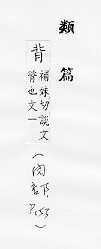 類篇
背
補妹切說文
脊也文一
(肉部
P.153)